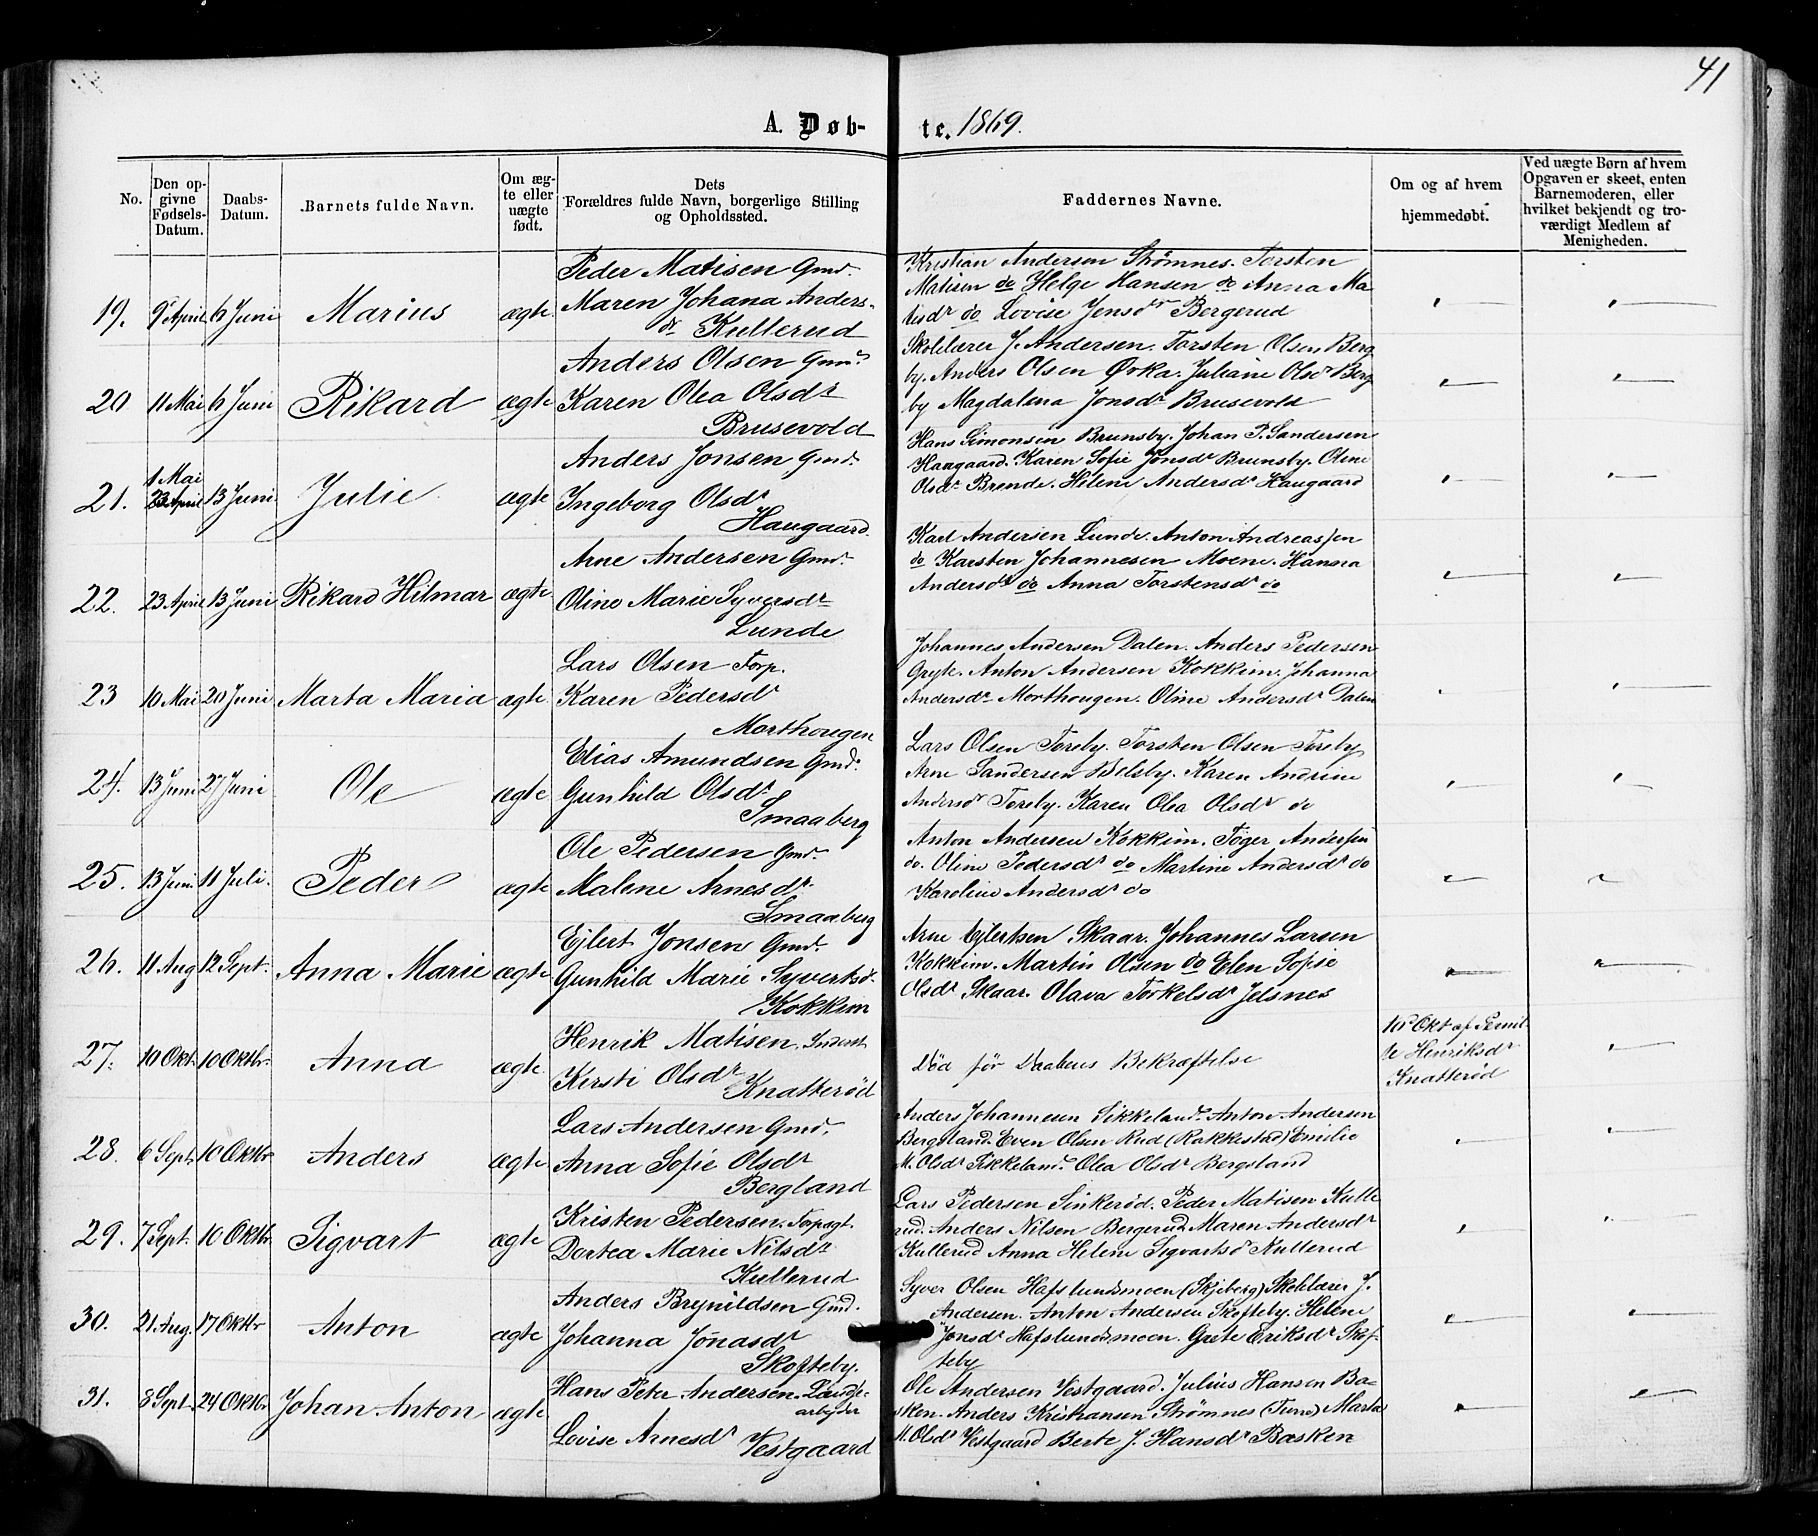 41
A. Døb-te. 1869.
No.
Den op-
givne
Fødsels-
Datum.
Daabs-
Datum.
Barnets fulde Navn.
Om æg-
te eller
uægte
født.
Dets
Forældres fulde Navn, borgerlige Stilling
og Opholdssted.
Faddernes Navne.
Om og af hvem
hjemmedøbt.
Ved uægte Børn af hvem
Opgaven er skeet, enten
Barnemoderen, eller
hvilket bekjendt og tro-
værdigt Medlem af
Menigheden.
19. 9 April 6 Juni Marius ægte
Peder Matisen Gmd.
Maren Johana Anders-
dr Kullerud
Kristian Andersen Strømnes. Torsten
Matisen do Helge Hansen do Anna Ma-
tisdr do Lovise Jensdr Bergerud
20 11 Mai 6 Juni Rikard ægte
Anders Olsen Gmd.
Karen Olea Olsdr
Brusevold
Skolelærer J. Andersen. Torsten Olsen Berg
by. Anders Olsen Ørka. Juliane Olsdr Berg
by Magdalena Jonsdr Brusevold
21. 1 Mai
23 April 13 Juni Julie ægte
Anders Jonsen Gmd.
Ingeborg Olsdr
Haugaard
Hans Simonsen Brunsby. Johan P. Sandersen
Haagaard. Karen Sofie Jonsdr Brunsby. Oline
Olsdr Brende. Helene Andersdr Haugaard
22. 23 April 13 Juni Rikard Hilmar ægte
Arne Andersen Gmd.
Oline Marie Syversdr
Lunde
Karl Andersen Lunde. Anton Andreassen
do Karsten Johannesen Moene. Hanna
Andersdr do Anna Torstensdr do
23 10 Mai 20 Juni Marta Maria ægte
Lars Olsen Torp.
Karen Pedersdr
Morthougen
Johannes Andersen Dalen. Anders Pedersen
Gryte. Anton Andersen Kokkim. Johanna
Andersdr Morthougen. Oline Andersdr Dalen
24. 13 Juni 27 Juni Ole ægte
Elias Amundsen Gmd.
Gunhild Olsdr
Smaaberg
Lars Olsen Toreby. Torsten Olsen Toreby
Arne Sandersen Belsby. Karen Andrine
Andersdr Toreby. Karen Olea Olsdr do
25. 13 Juni 11 Juli. Peder ægte
Ole Pedersen Gmd.
Malene Arnesdr.
Smaaberg
Anton Andersen Kokkim. Tøger Andersen
do. Oline Pedersdr do Martine Andersdr do
Karoline Andersdr do
26. 11 Aug 12 Sept. Anna Marie ægte
Ejlert Jonsen Gmd.
Gunhild Marie Syvertsd.
Kokkim
Arne Ejlertsen Skaar. Johannes Larsen
Kokkim. Martin Olsen do Elen Sofie
Olsdr Skaar. Olava Torkelsdr Jelsnes
27. 10 Okt. 10 Oktbr. Anna ægte
Henrik Matisen Inderst
Kersti Olsdr
Knatterød
Død før Daabens Bekræftelse
10 Okt af Pernil-
le Henriksdr
Knatterød
28. 6 Sept. 10 Oktbr Anders ægte
Lars Andersen Gmd.
Anna Sofie Olsdr
Bergland
Anders Johannesen Sikkeland. Anton Andersen
Bergsland. Even Olsen Rud (Rakkestad) Emilie
M. Olsdr Sikkeland. Olea Olsdr Bergsland
29. 7 Sept. 10 Oktbr Sigvart ægte
Kristen Pedersen. Forpagt.
Dortea Marie Nilsdr
Kullerud
Lars Pedersen Sinkerød. Peder Matisen Kulle
rud. Anders Nilsen Bergerud. Maren Andersdr
Kullerud Anna Helene Sigvartsdr Kullerud
30. 21 Aug. 17 Oktbr Anton ægte
Anders Brynildsen Gmd.
Johanna Jonasdr
Skofteby.
Syver Olsen Hafslundsmoen (Skjeberg) Skolelærer J.
Andersen. Anton Andersen Skofteby. Helene
Jonsdr Hafslundsmoen. Grete Eriksdr Skof-
teby
31. 8 Sept. 24 Oktbr Johan Anton ægte
Hans Peter Andersen. Landje-
arbejder
Lovise Arnesdr Vestgaard
Ole Andersen Vestgaard. Julius Hansen Ba-
sken. Anders Kristiansen Strømnes (Tune) Marta
M. Olsdr Vestgaard Berte J. Hansdr Basken